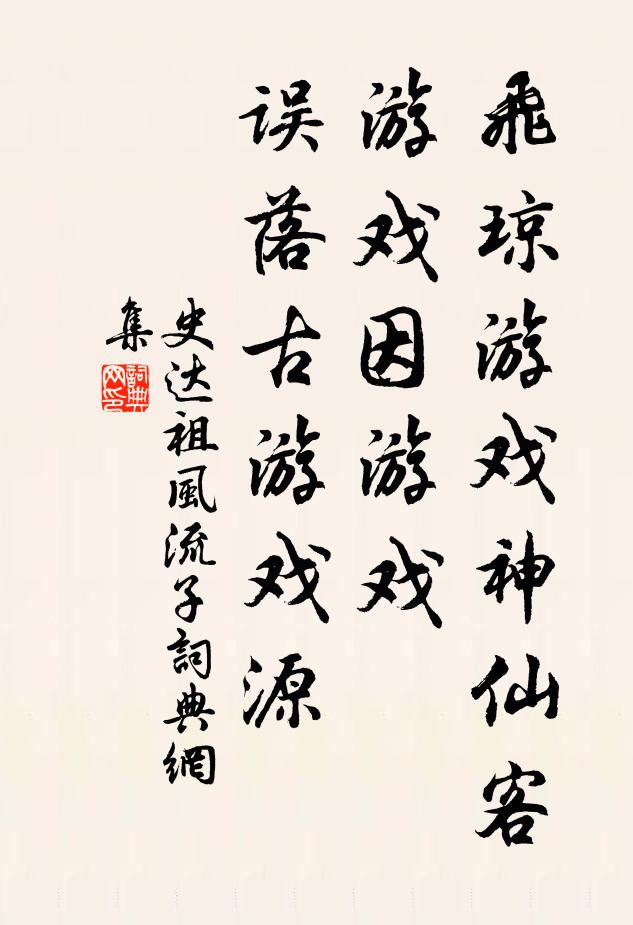 飛琼游戏神仙客
游戏因游戏
误落古游戏源
史达祖風流子詞典網
集
詞典
网印